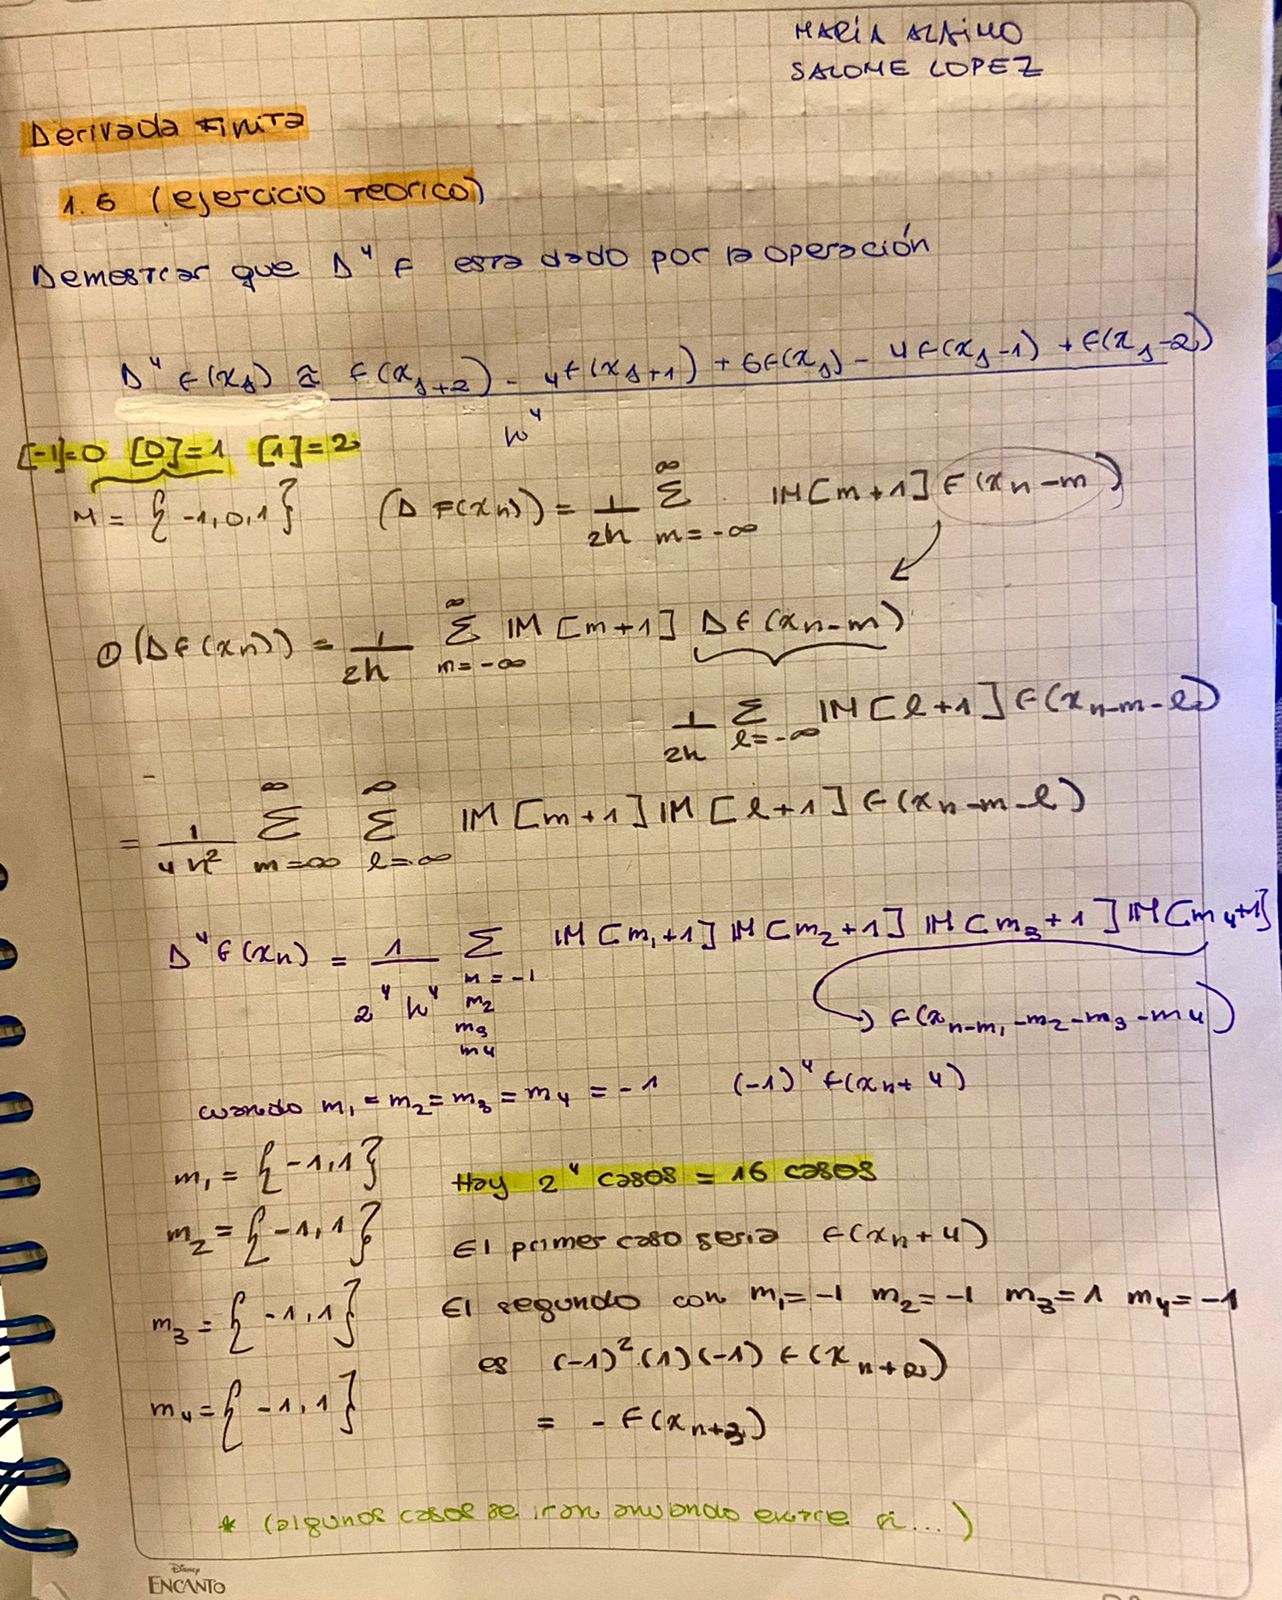 MARÍA ALAIMO
SALOME LOPEZ
Derivada Finita
1.6 (ejercicio teorico)
Demostrar que Δ⁴ F esta dado por la operación
Δ⁴ F(xⱼ) ≈ F(xⱼ₊₂) - 4F(xⱼ₊₁) + 6F(xⱼ) - 4F(xⱼ-1) + F(xⱼ-2)
h⁴
[-1]=0 [0]=1 [1]=2
M = { -1, 0, 1 } (Δ F(xn)) = 1/2h Σ m=-∞ ∞ IM[m+1] F(xn-m)
① (ΔF(xn)) = 1/2h Σ m=-∞ ∞ IM[m+1] ΔF(xn-m)
1/2h Σ l=-∞ IM[l+1] F(xn-m-l)
= 1/4h² Σ m=∞ ∞ Σ l=∞ ∞ IM[m+1] IM[l+1] F(xn-m-l)
Δ⁴F(xn) = 1/2⁴h⁴ Σ m=-1 m₂ m₃ m₄ IM[m₁+1] IM[m₂+1] IM[m₃+1] IM[m₄+1]
F(xn-m₁-m₂-m₃-m₄)
cuando m₁=m₂=m₃=m₄ = -1 (-1)⁴ F(xn+4)
m₁ = { -1, 1 }
Hay 2⁴ casos = 16 casos
m₂ = { -1, 1 }
El primer caso seria F(xn+4)
m₃ = { -1, 1 }
El segundo con m₁=-1 m₂=-1 m₃=1 m₄=-1
es (-1)²(1)(-1) F(xn+2)
m₄ = { -1, 1 }
= - F(xn+3)
* (algunos casos se iran anulando entre si...)
Disney
ENCANTO